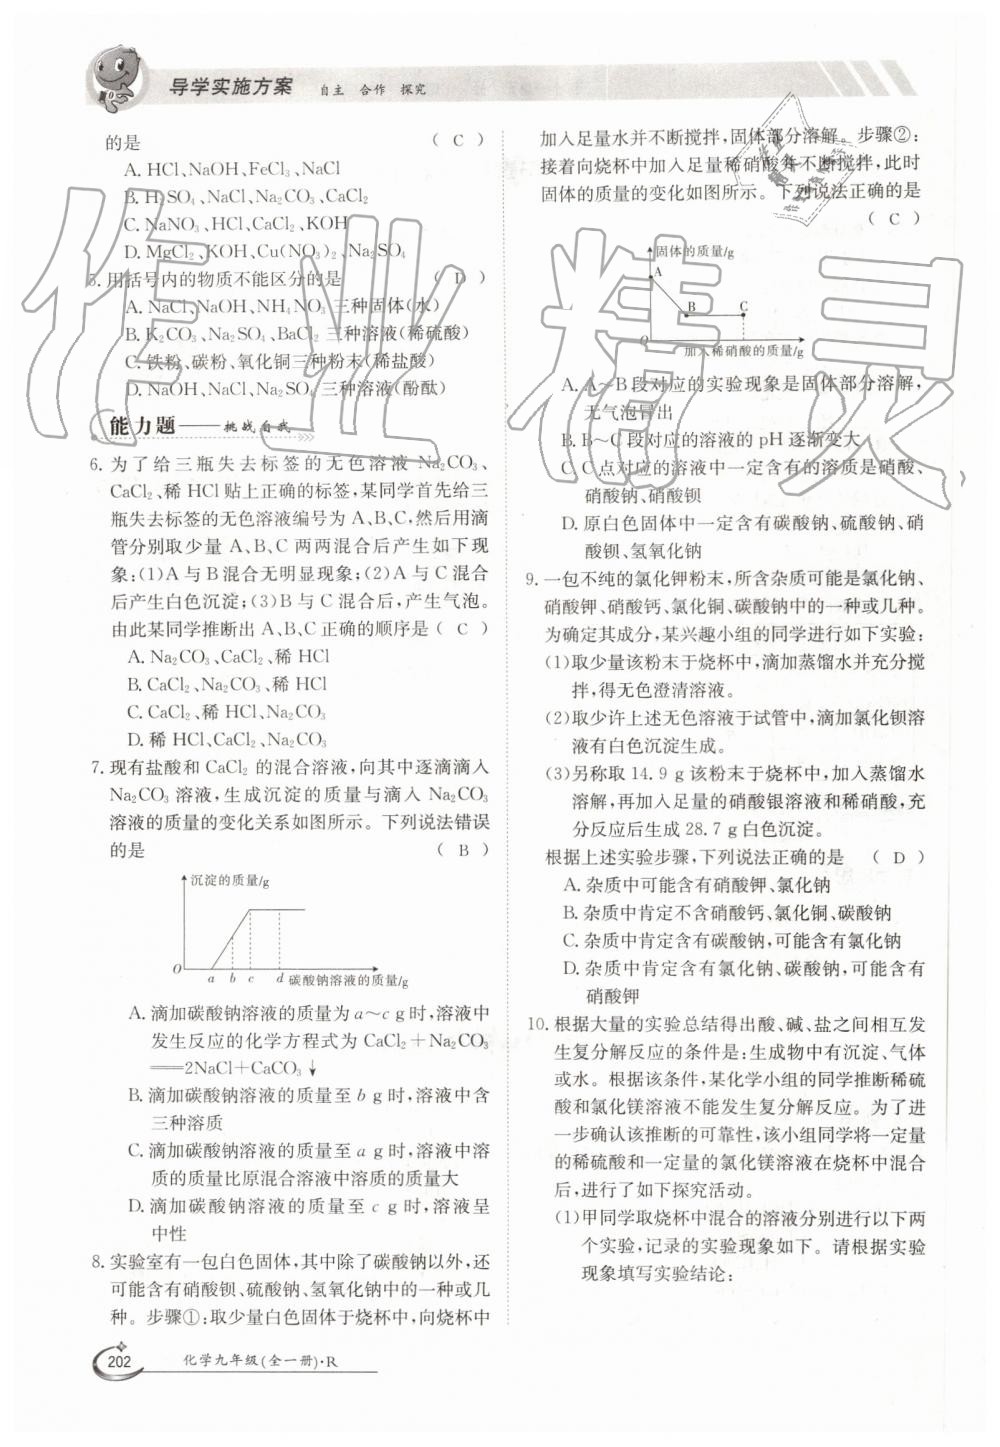 导学实施方案 自主 合作 探究
的是 ( C )
A. HCl、NaOH、FeCl₃、NaCl
B. H₂SO₄、NaCl、Na₂CO₃、CaCl₂
C. NaNO₃、HCl、CaCl₂、KOH
D. MgCl₂、KOH、Cu(NO₃)₂、Na₂SO₄
5. 用括号内的物质不能区分的是 ( D )
A. NaCl、NaOH、NH₄NO₃ 三种固体(水)
B. K₂CO₃、Na₂SO₄、BaCl₂ 三种溶液(稀硫酸)
C. 铁粉、碳粉、氧化铜三种粉末(稀盐酸)
D. NaOH、NaCl、Na₂SO₄ 三种溶液(酚酞)
能力题——挑战自我
6. 为了给三瓶失去标签的无色溶液 Na₂CO₃、
CaCl₂、稀 HCl 贴上正确的标签,某同学首先给三
瓶失去标签的无色溶液编号为 A、B、C,然后用滴
管分别取少量 A、B、C 两两混合后产生如下现
象:(1)A 与 B 混合无明显现象;(2)A 与 C 混合
后产生白色沉淀;(3)B 与 C 混合后,产生气泡。
由此某同学推断出 A、B、C 正确的顺序是 ( C )
A. Na₂CO₃、CaCl₂、稀 HCl
B. CaCl₂、Na₂CO₃、稀 HCl
C. CaCl₂、稀 HCl、Na₂CO₃
D. 稀 HCl、CaCl₂、Na₂CO₃
7. 现有盐酸和 CaCl₂ 的混合溶液,向其中逐滴滴入
Na₂CO₃ 溶液,生成沉淀的质量与滴入 Na₂CO₃
溶液的质量的变化关系如图所示。下列说法错误
的是 ( B )
沉淀的质量/g
O a b c d 碳酸钠溶液的质量/g
A. 滴加碳酸钠溶液的质量为 a～c g 时,溶液中
发生反应的化学方程式为 CaCl₂+Na₂CO₃
══2NaCl+CaCO₃↓
B. 滴加碳酸钠溶液的质量至 b g 时,溶液中含
三种溶质
C. 滴加碳酸钠溶液的质量至 a g 时,溶液中溶
质的质量比原混合溶液中溶质的质量大
D. 滴加碳酸钠溶液的质量至 c g 时,溶液呈
中性
8. 实验室有一包白色固体,其中除了碳酸钠以外,还
可能含有硝酸钡、硫酸钠、氢氧化钠中的一种或几
种。步骤①:取少量白色固体于烧杯中,向烧杯中
加入足量水并不断搅拌,固体部分溶解。步骤②:
接着向烧杯中加入足量稀硝酸并不断搅拌,此时
固体的质量的变化如图所示。下列说法正确的是
( C )
固体的质量/g
A
B C
O 加入稀硝酸的质量/g
A. A～B 段对应的实验现象是固体部分溶解,
无气泡冒出
B. B～C 段对应的溶液的 pH 逐渐变大
C. C 点对应的溶液中一定含有的溶质是硝酸、
硝酸钠、硝酸钡
D. 原白色固体中一定含有碳酸钠、硫酸钠、硝
酸钡、氢氧化钠
9. 一包不纯的氯化钾粉末,所含杂质可能是氯化钠、
硝酸钾、硝酸钙、氯化铜、碳酸钠中的一种或几种。
为确定其成分,某兴趣小组的同学进行如下实验:
(1)取少量该粉末于烧杯中,滴加蒸馏水并充分搅
拌,得无色澄清溶液。
(2)取少许上述无色溶液于试管中,滴加氯化钡溶
液有白色沉淀生成。
(3)另称取 14.9 g 该粉末于烧杯中,加入蒸馏水
溶解,再加入足量的硝酸银溶液和稀硝酸,充
分反应后生成 28.7 g 白色沉淀。
根据上述实验步骤,下列说法正确的是 ( D )
A. 杂质中可能含有硝酸钾、氯化钠
B. 杂质中肯定不含硝酸钙、氯化铜、碳酸钠
C. 杂质中肯定含有碳酸钠,可能含有氯化钠
D. 杂质中肯定含有氯化钠、碳酸钠,可能含有
硝酸钾
10. 根据大量的实验总结得出酸、碱、盐之间相互发
生复分解反应的条件是:生成物中有沉淀、气体
或水。根据该条件,某化学小组的同学推断稀硫
酸和氯化镁溶液不能发生复分解反应。为了进
一步确认该推断的可靠性,该小组同学将一定量
的稀硫酸和一定量的氯化镁溶液在烧杯中混合
后,进行了如下探究活动。
(1)甲同学取烧杯中混合的溶液分别进行以下两
个实验,记录的实验现象如下。请根据实验
现象填写实验结论:
202 化学九年级(全一册)·R
作业精灵